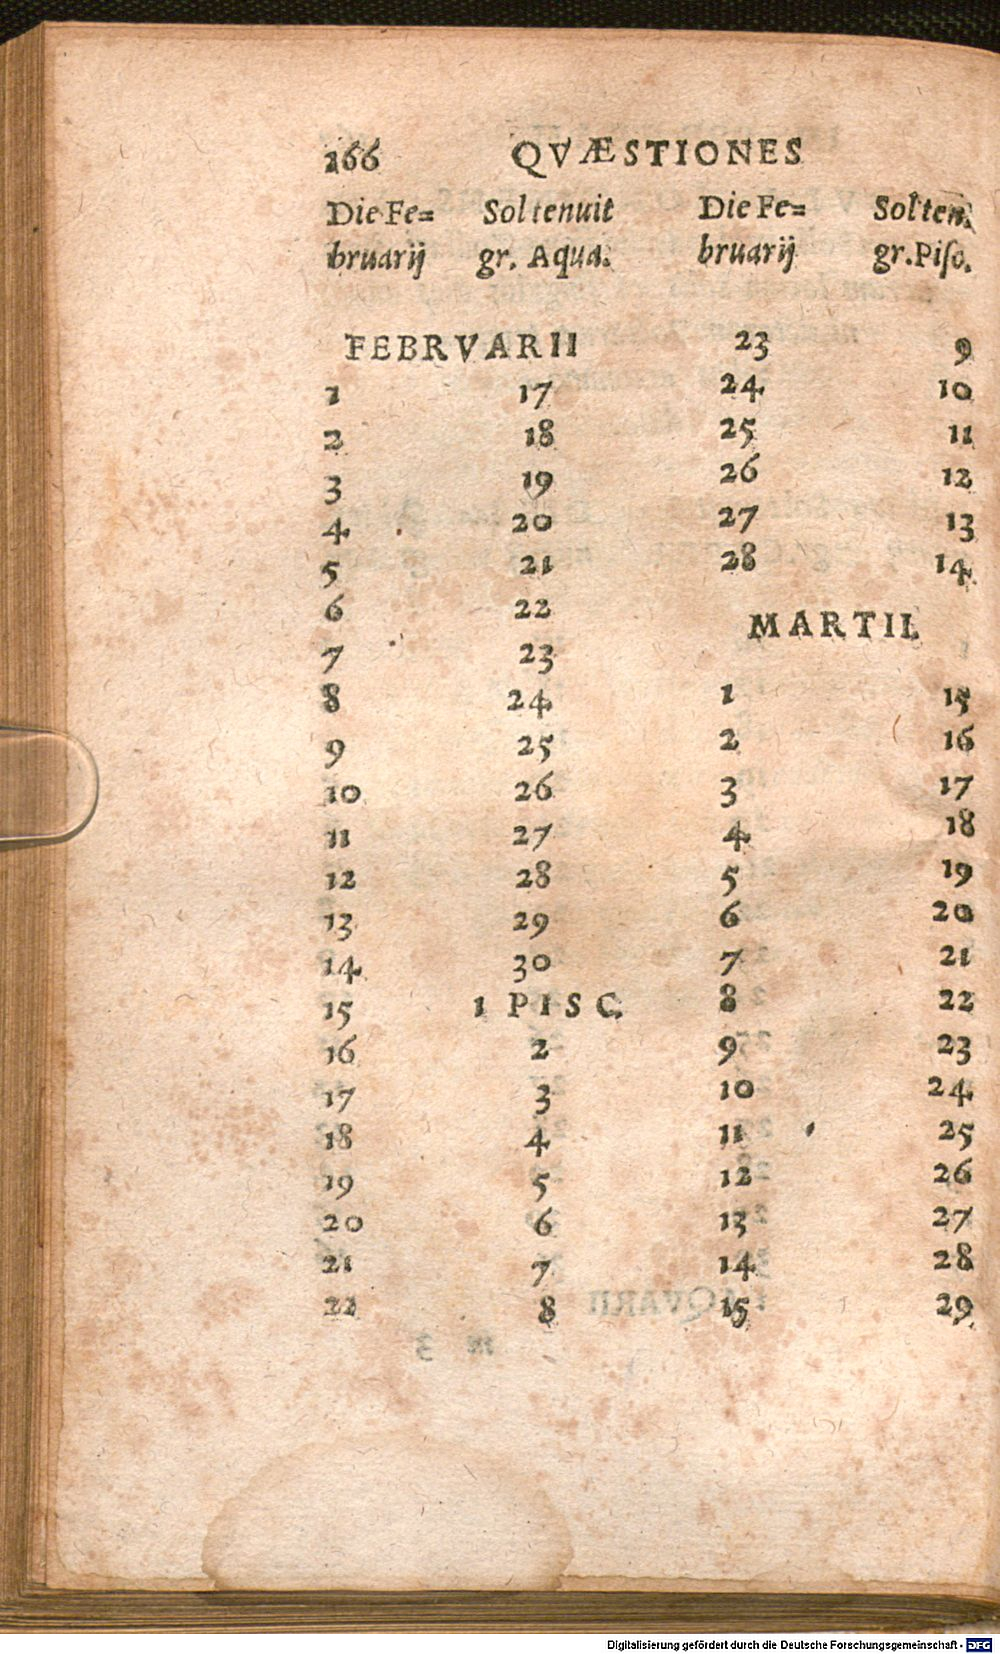 166 QVÆSTIONES
Die Fe= Sol tenuit Die Fe= Sol ten.
bruarij gr. Aqua. bruarij gr. Piſc.
FEBRVARII 23 9
1 17 24 10
2 18 25 11
3 19 26 12
4 20 27 13
5 21 28 14
6 22 MARTII.
7 23
8 24 1 15
9 25 2 16
10 26 3 17
11 27 4 18
12 28 5 19
13 29 6 20
14 30 7 21
15 1 PISC. 8 22
16 2 9 23
17 3 10 24
18 4 11 25
19 5 12 26
20 6 13 27
21 7 14 28
22 8 15 29
Digitalisierung gefördert durch die Deutsche Forschungsgemeinschaft - DFG